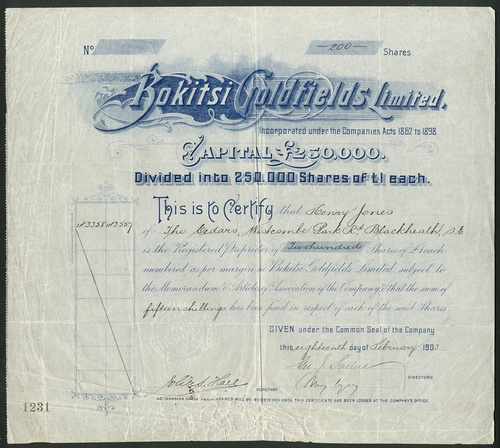 No
—200— Shares
Bokitsi Goldfields Limited.
Incorporated under the Companies Acts 1862 to 1898
CAPITAL £250,000.
Divided into 250,000 Shares of £1 each.
This is to Certify that Henry Jones
of The Cedars, Westcombe Park Rd Blackheath, S.E
is the Registered Proprietor of Two hundred Shares of £1 each
numbered as per margin in Bokitsi Goldfields Limited, subject to
the Memorandum & Articles of Association of the Company & that the sum of
fifteen shillings has been paid in respect of each of the said Shares.
GIVEN under the Common Seal of the Company
this eighteenth day of February 1903
DIRECTORS
SECRETARY
NO TRANSFER OF ANY SHARES WILL BE REGISTERED UNTIL THIS CERTIFICATE HAS BEEN LODGED AT THE COMPANY'S OFFICE.
1231